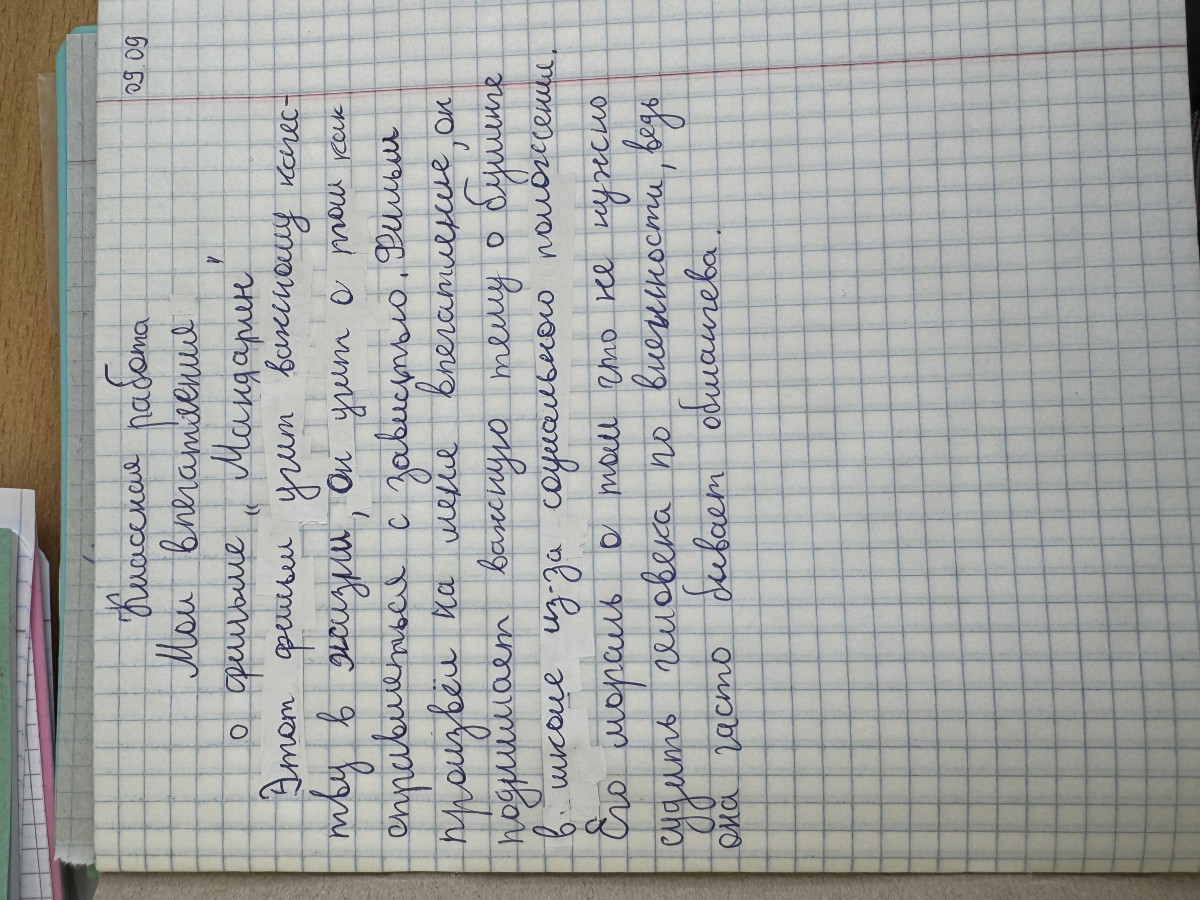 29.09
Классная работа
Мои впечатления
о фильме „Мандарин"
Этот фильм учит важному качес-
тву в жизни, он учит о том как
справляться с завистью. Фильм
произвёл на меня впечатление, он
поднимает важную тему о булинге
в школе из-за социального положения.
Его мораль о том что не нужно
судить человека по внешности, ведь
она часто бывает обманчева.